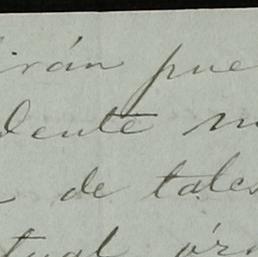 irán pue
dente m
de tales
tual ór